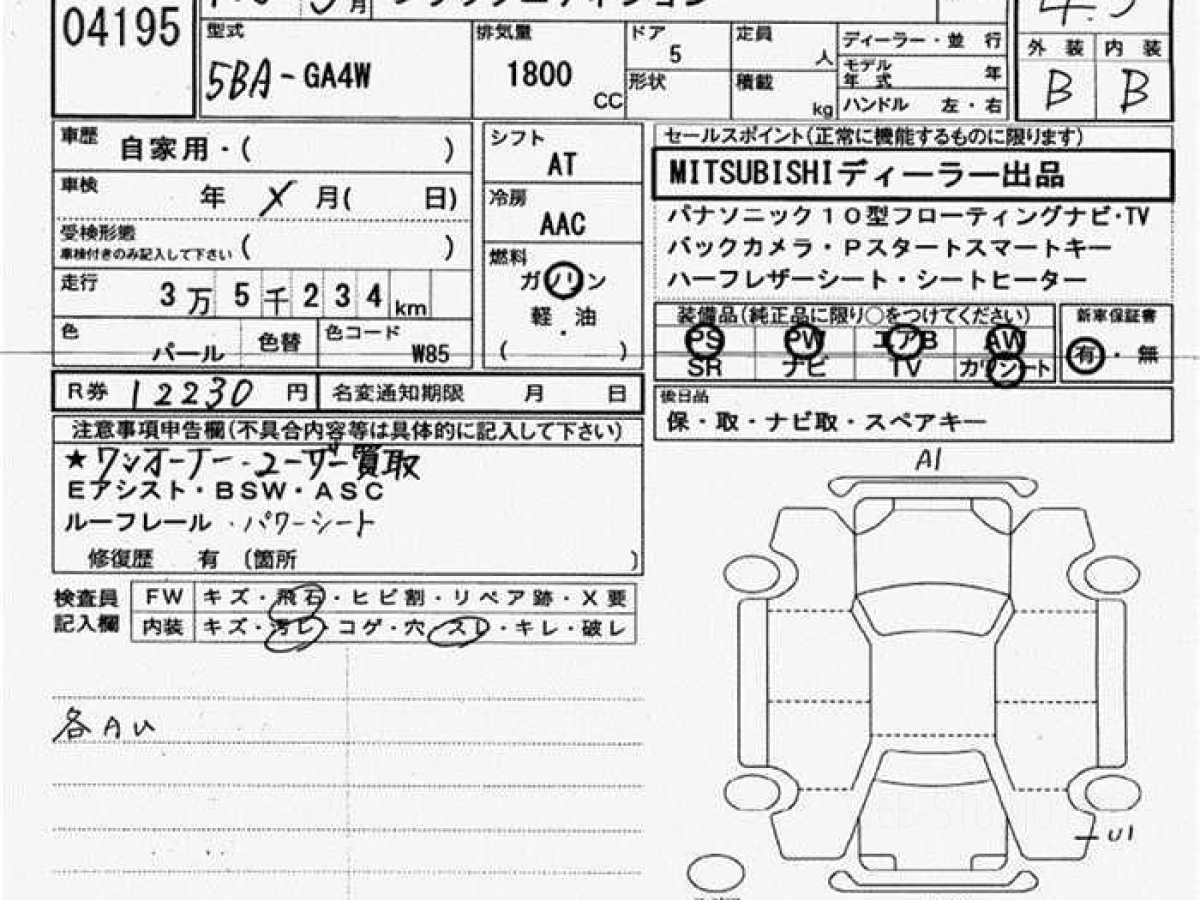 04195
5月 ブラックエディション
4.5
型式 5BA-GA4W
排気量 1800 CC
ドア 5
形状
定員 人
積載 kg
ディーラー・並 行
モデル年式 年
ハンドル 左・右
外 装 内 装
B B
車歴 自家用・( )
車検 年 X 月( 日)
受検形態
車検付きのみ記入して下さい ( )
走行 3万5千234km
色 パール 色替 色コード W85
シフト AT
冷房 AAC
燃料 ガソリン
軽・油
( )
セールスポイント(正常に機能するものに限ります)
MITSUBISHIディーラー出品
パナソニック10型フローティングナビ・TV
バックカメラ・Pスタートスマートキー
ハーフレザーシート・シートヒーター
装備品(純正品に限り○をつけてください)
PS PW エアB AW
SR ナビ TV カワシート
新車保証書
有・無
R券 12230 円 名変通知期限 月 日
後日品
保・取・ナビ取・スペアキー
注意事項申告欄(不具合内容等は具体的に記入して下さい)
★ワンオーナー・ユーザー買取
Eアシスト・BSW・ASC
ルーフレール・パワーシート
修復歴 有 (箇所 )
検査員記入欄
FW キズ・飛石・ヒビ割・リペア跡・X要
内装 キズ・汚レ・コゲ・穴・スレ・キレ・破レ
各AU
A1
U1